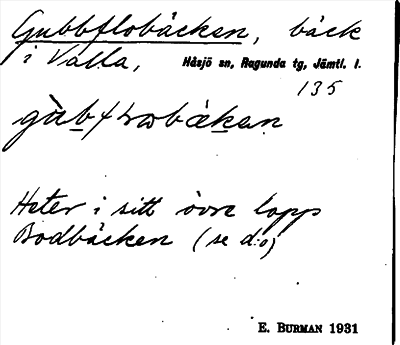 Gubbflobäcken, bäck
i Valla, Håsjö sn, Ragunda tg, Jämtl. l.
135
Heter i sitt övre lopp
Bodbäcken (se d:o)
E. BURMAN 1931